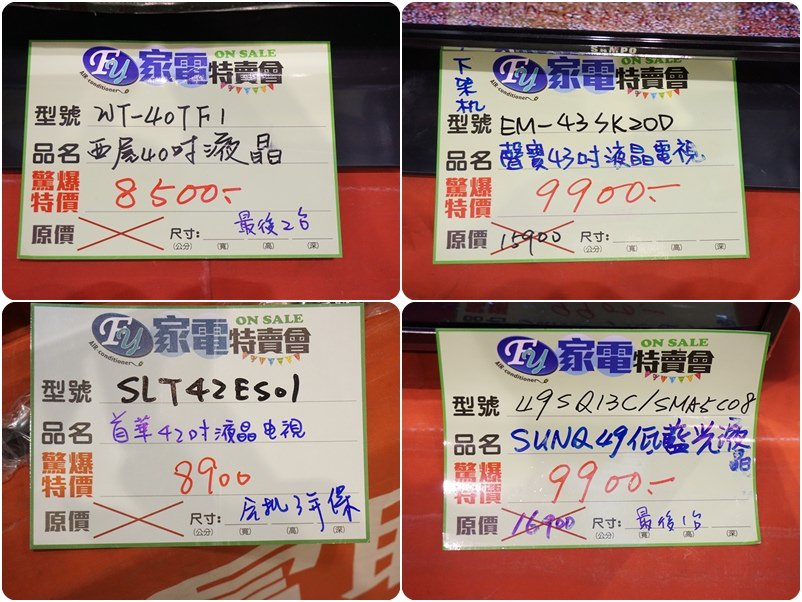 FY 家電 ON SALE 特賣會
AIR-conditioner
型號 WT-40TF1
品名 西屋40吋液晶
驚爆特價 8500.-
原價 最後2台
尺寸:
(公分) (寬) (高) (深)
SAMPO
下架机
FY 家電 ON SALE 特賣會
AIR-conditioner
型號 EM-43SK20D
品名 聲寶43吋液晶電視
驚爆特價 9900.-
原價 15900 尺寸:
(公分) (寬) (高) (深)
FY 家電 ON SALE 特賣會
AIR-conditioner
型號 SLT42ES01
品名 首華42吋液晶电視
驚爆特價 8900
原價 尺寸: 全机3年保
(公分) (寬) (高) (深)
FY 家電 ON SALE 特賣會
AIR-conditioner
型號 49SQ13C/SMA5C08
品名 SUNQ49低藍光液晶
驚爆特價 9900.-
原價 16900 尺寸: 最後1台
(公分) (寬) (高) (深)